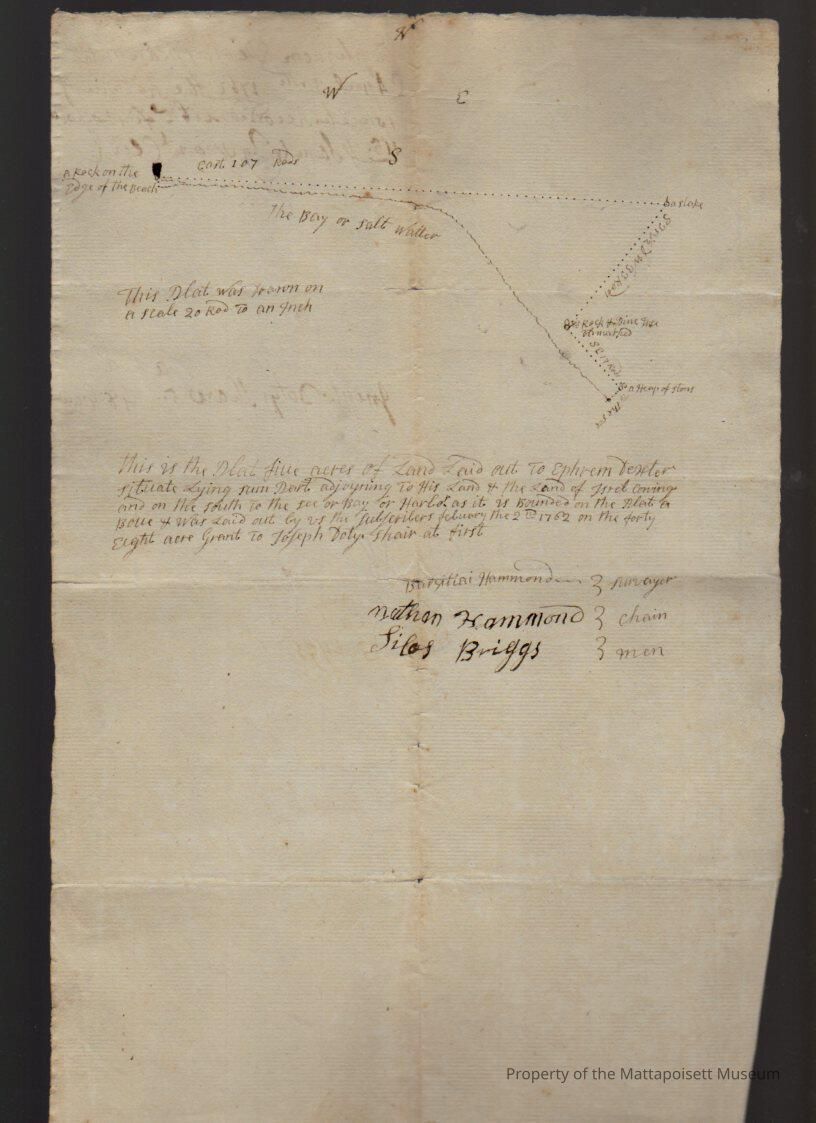 N
W E
S
a Rock on the
Edge of the Beach
East 107 Rods
a stake
The Bay or Salt Watter
This Plat was Drawn on
a scale 20 Rod To an Inch
a Rock & Pine Tree
marked
a Heap of Stons
To the see
This is the Plat five acres of Land Laid out To Ephrem Dexter
situate Lying sum Part adjoyning To His Land & the Land of Isrel Cowing
and on the south To the see or Bay or Harbor as it is Bounded on the Plat a
Boue & Was Laid out by us the Subscribers febuary the 2 1762 on the forty
Eight acre Grant To Joseph Dotys Shair at first
Barzillai Hammond } surveyor
Nathan Hammond } chain
Silas Briggs } men
Property of the Mattapoisett Museum